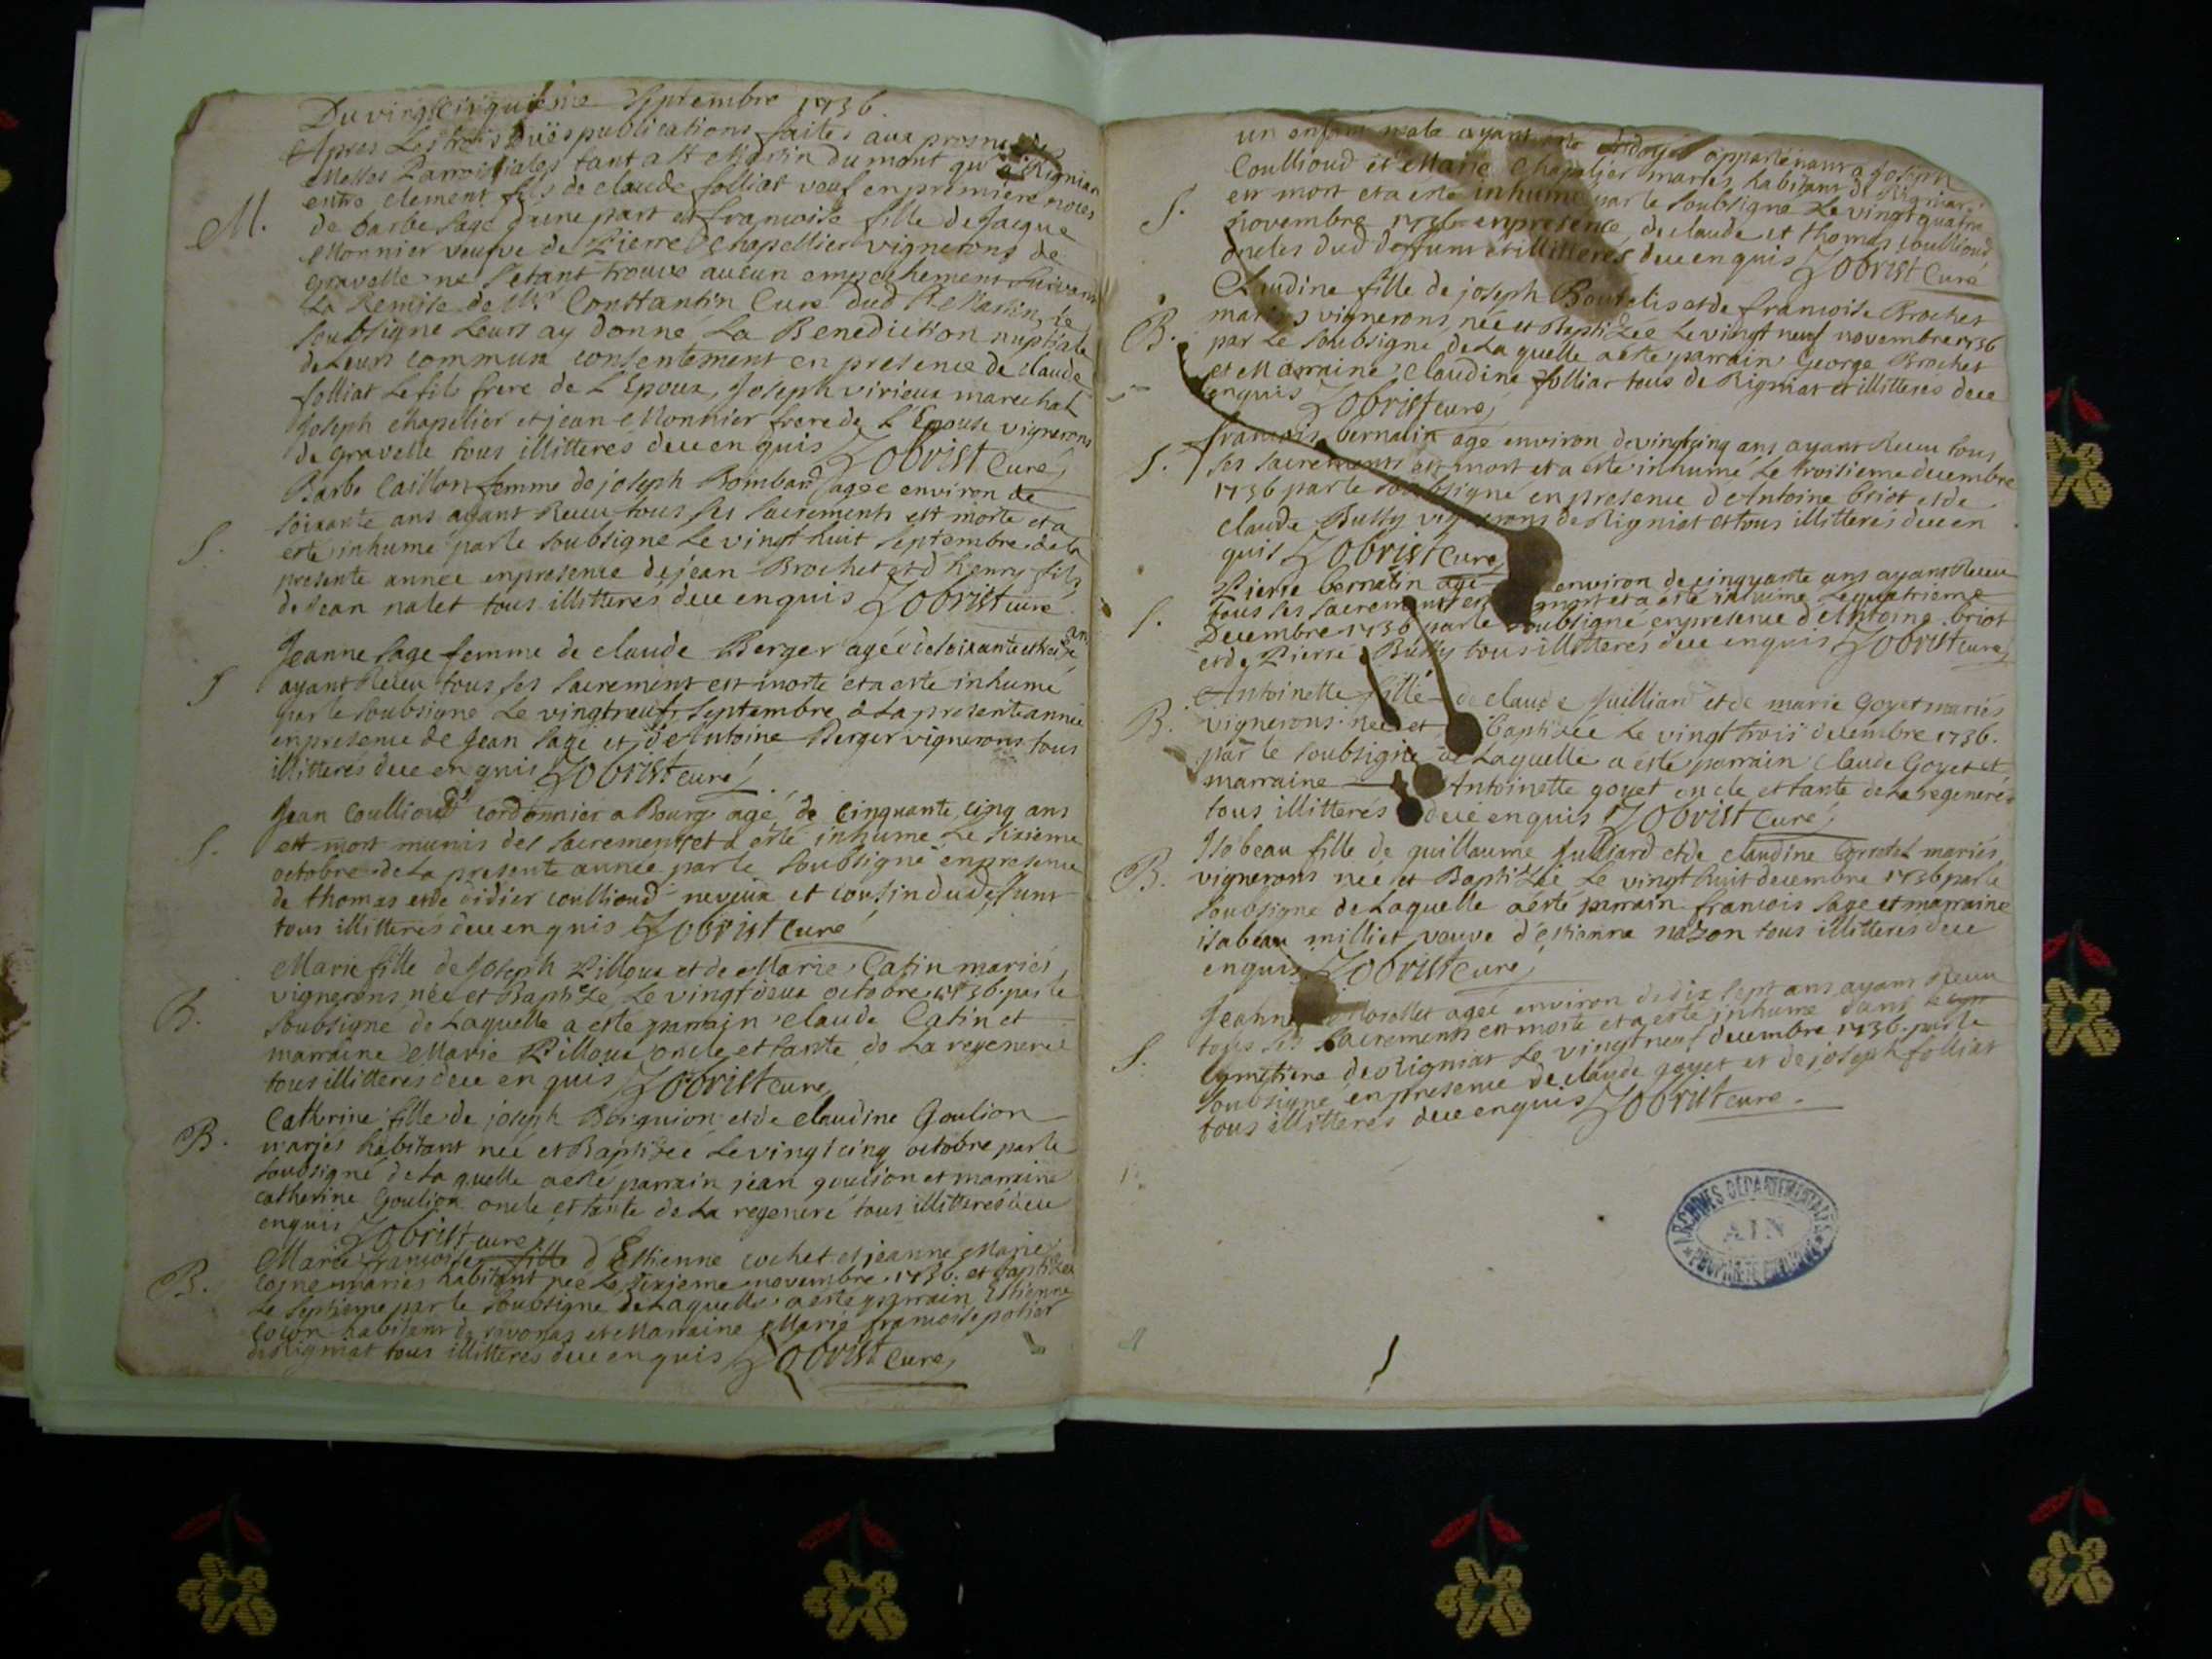 Du vingtcinquiesme Septembre 1736.
Apres Les trois Duës publications faites aux prosnes
Messes Parroissiales tant a St Martin du mont qu'a Rigniat
entre clement fils de claude folliat veuf en premiere noces
M. de barbe Sage d'une part et francoise fille de Jacque
Monnier veufve de Pierre Chapellier vignerons de
gravelle ne s'etant trouve aucun empechement suivant
La Remise de Mr Constantin Cure dud St Martin, je
soubsigne Leurs ay donné La Benediction nuptiale
de Leurs commun consentement en presence de claude
folliat Le fils frere de L'Epoux, Joseph virieux marechal
Joseph chapelier et jean Monnier frere de L'Epouse vignerons
de gravelle tous illitteres deue enquis Zobrist Curé
Barbe Caillon femme de joseph Bombard agee environ de
soixante ans ayant Receu tous ses sacrements est morte et a
S. esté inhumé par le soubsigne Le vingt huit septembre de la
presente année en presence de jean Brochet et d'henry fils
de Jean nalet tous illitteres deue enquis Zobrist curé
Jeanne Sage femme de claude Berger agée de soixante et treize ans
S ayant Receu tous ses sacrement est morte et a esté inhumé
par le soubsigne Le vingtneuf septembre de La presente année
en presence de Jean Sage et d'Antoine Berger vignerons tous
illitteres deue enquis Zobrist curé
Jean Coullioud cordonnier a Bourg agé de Cinquante cinq ans
S. est mort munis des sacrements et a esté inhumé Le sixieme
octobre de La presente année par le soubsigné en presence
de thomas et de didier coullioud neveux et cousin dud defunt
tous illitterés deue enquis Zobrist Curé
Marie fille de Joseph Pilloux et de Marie Catin mariés,
vignerons née et Baptizé Le vingt deux octobre 1736 par le
B. soubsigné de Laquelle a esté parrain claude Catin et
marraine Marie Pilloux oncle et tante de La regeneree
tous illitterés deue enquis Zobrist cure
Catherine fille de joseph Boignion et de claudine Goulion
B. mariés habitant née et Baptizée Le vingt cinq octobre par le
soubsigné de La quelle a esté parrain jean goulion et marraine
catherine Goulion oncle et tante de La regeneré tous illitteres deue
enquis Zobrist cure
Marie francoise fille d'Estienne cochet et jeanne Marie
B. Cosne mariés habitant née Le sixieme novembre 1736. et baptizée
Le septieme par le soubsigne de Laquelle a esté parrain Estienne
habitant de et Marraine Marie francoise potier
de Rigniat tous illitteres deue enquis Zobrist Cure
un enfant male ayant esté ondoyé appartenant a Joseph
Coullioud et Marie Chapelier mariés habitant de Rigniat
est mort et a esté inhumé par le soubsigné Le vingt quatre
S. novembre 1736 en presence de claude et thomas coullioud
oncles dud deffunt et illitteres deue enquis Zobrist Curé
Claudine fille de joseph et de francoise Brochet
mariés vignerons née et Baptizée Le vingt neuf novembre 1736
B. par Le soubsigné de La quelle a esté parrain George Brochet
et Marraine claudine folliat tous de Rigniat et illitteres deue
enquis Zobrist curé
francois bernatin agé environ de vingtcinq ans ayant Receu tous
S. ses sacrements est mort et a esté inhumé Le troisieme decembre
1736 par le soubsigné en presence d'Antoine briot et de
claude Bussy vignerons de Rigniat et tous illitterés deue en
quis Zobrist Cure
Pierre bernatin agé environ de cinquante ans ayant Receu
tous ses sacrements est mort et a esté inhumé Le quatrieme
S. Decembre 1736 par le soubsigné en presence d'Antoine briot
et de Pierre Bussy tous illitterés deue enquis Zobrist curé
Antoinette fille de claude Juilliard et de marie Goyet mariés
B. vignerons née et Baptizée Le vingt trois decembre 1736.
par le soubsigné de Laquelle a esté parrain Claude Goyet et
marraine Antoinette goyet oncle et tante de La regeneree
tous illitterés deue enquis Zobrist Curé
Isabeau fille de guillaume Julliard et de claudine mariés
B. vignerons née et Baptizée Le vingt huit decembre 1736 par le
soubsigne de Laquelle a esté parrain francois Sage et marraine
isabeau milliet veuve d'estienne nazon tous illitteres deue
enquis Zobrist Cure
Jeanne Morollet agée environ de dix sept ans ayant Receu
tous ses sacrements est morte et a esté inhumé dans le
S. Cymetiere de Rigniat Le vingt neuf decembre 1736. par le
soubsigné en presence de claude goyet et de joseph folliat
tous illitteres deue enquis Zobrist cure.
ARCHIVES DÉPARTEMENTALES
AIN
PROPRIÉTÉ PUBLIQUE